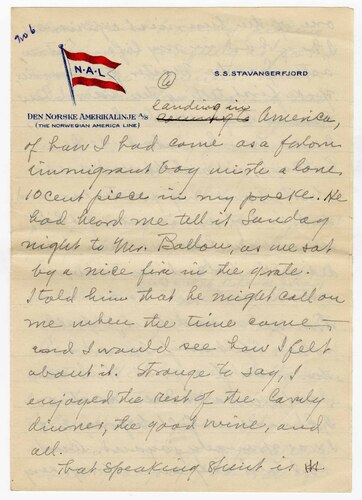 No 6
N·A·L
6
S.S. STAVANGERFJORD
DEN NORSKE AMERIKALINJE A/S
(THE NORWEGIAN AMERICA LINE)
landing in
America,
of how I had come as a forlorn
immigrant boy with a lone
10 cent piece in my pocke. He
had heard me tell it Sunday
night to Mr. Ballou, as we sat
by a nice fire in the grate.
I told him that he might call on
me when the time came
and I would see how I felt
about it. Strange to say, I
enjoyed the rest of the lovely
dinner, the good wine, and
all.
That speaking stunt is